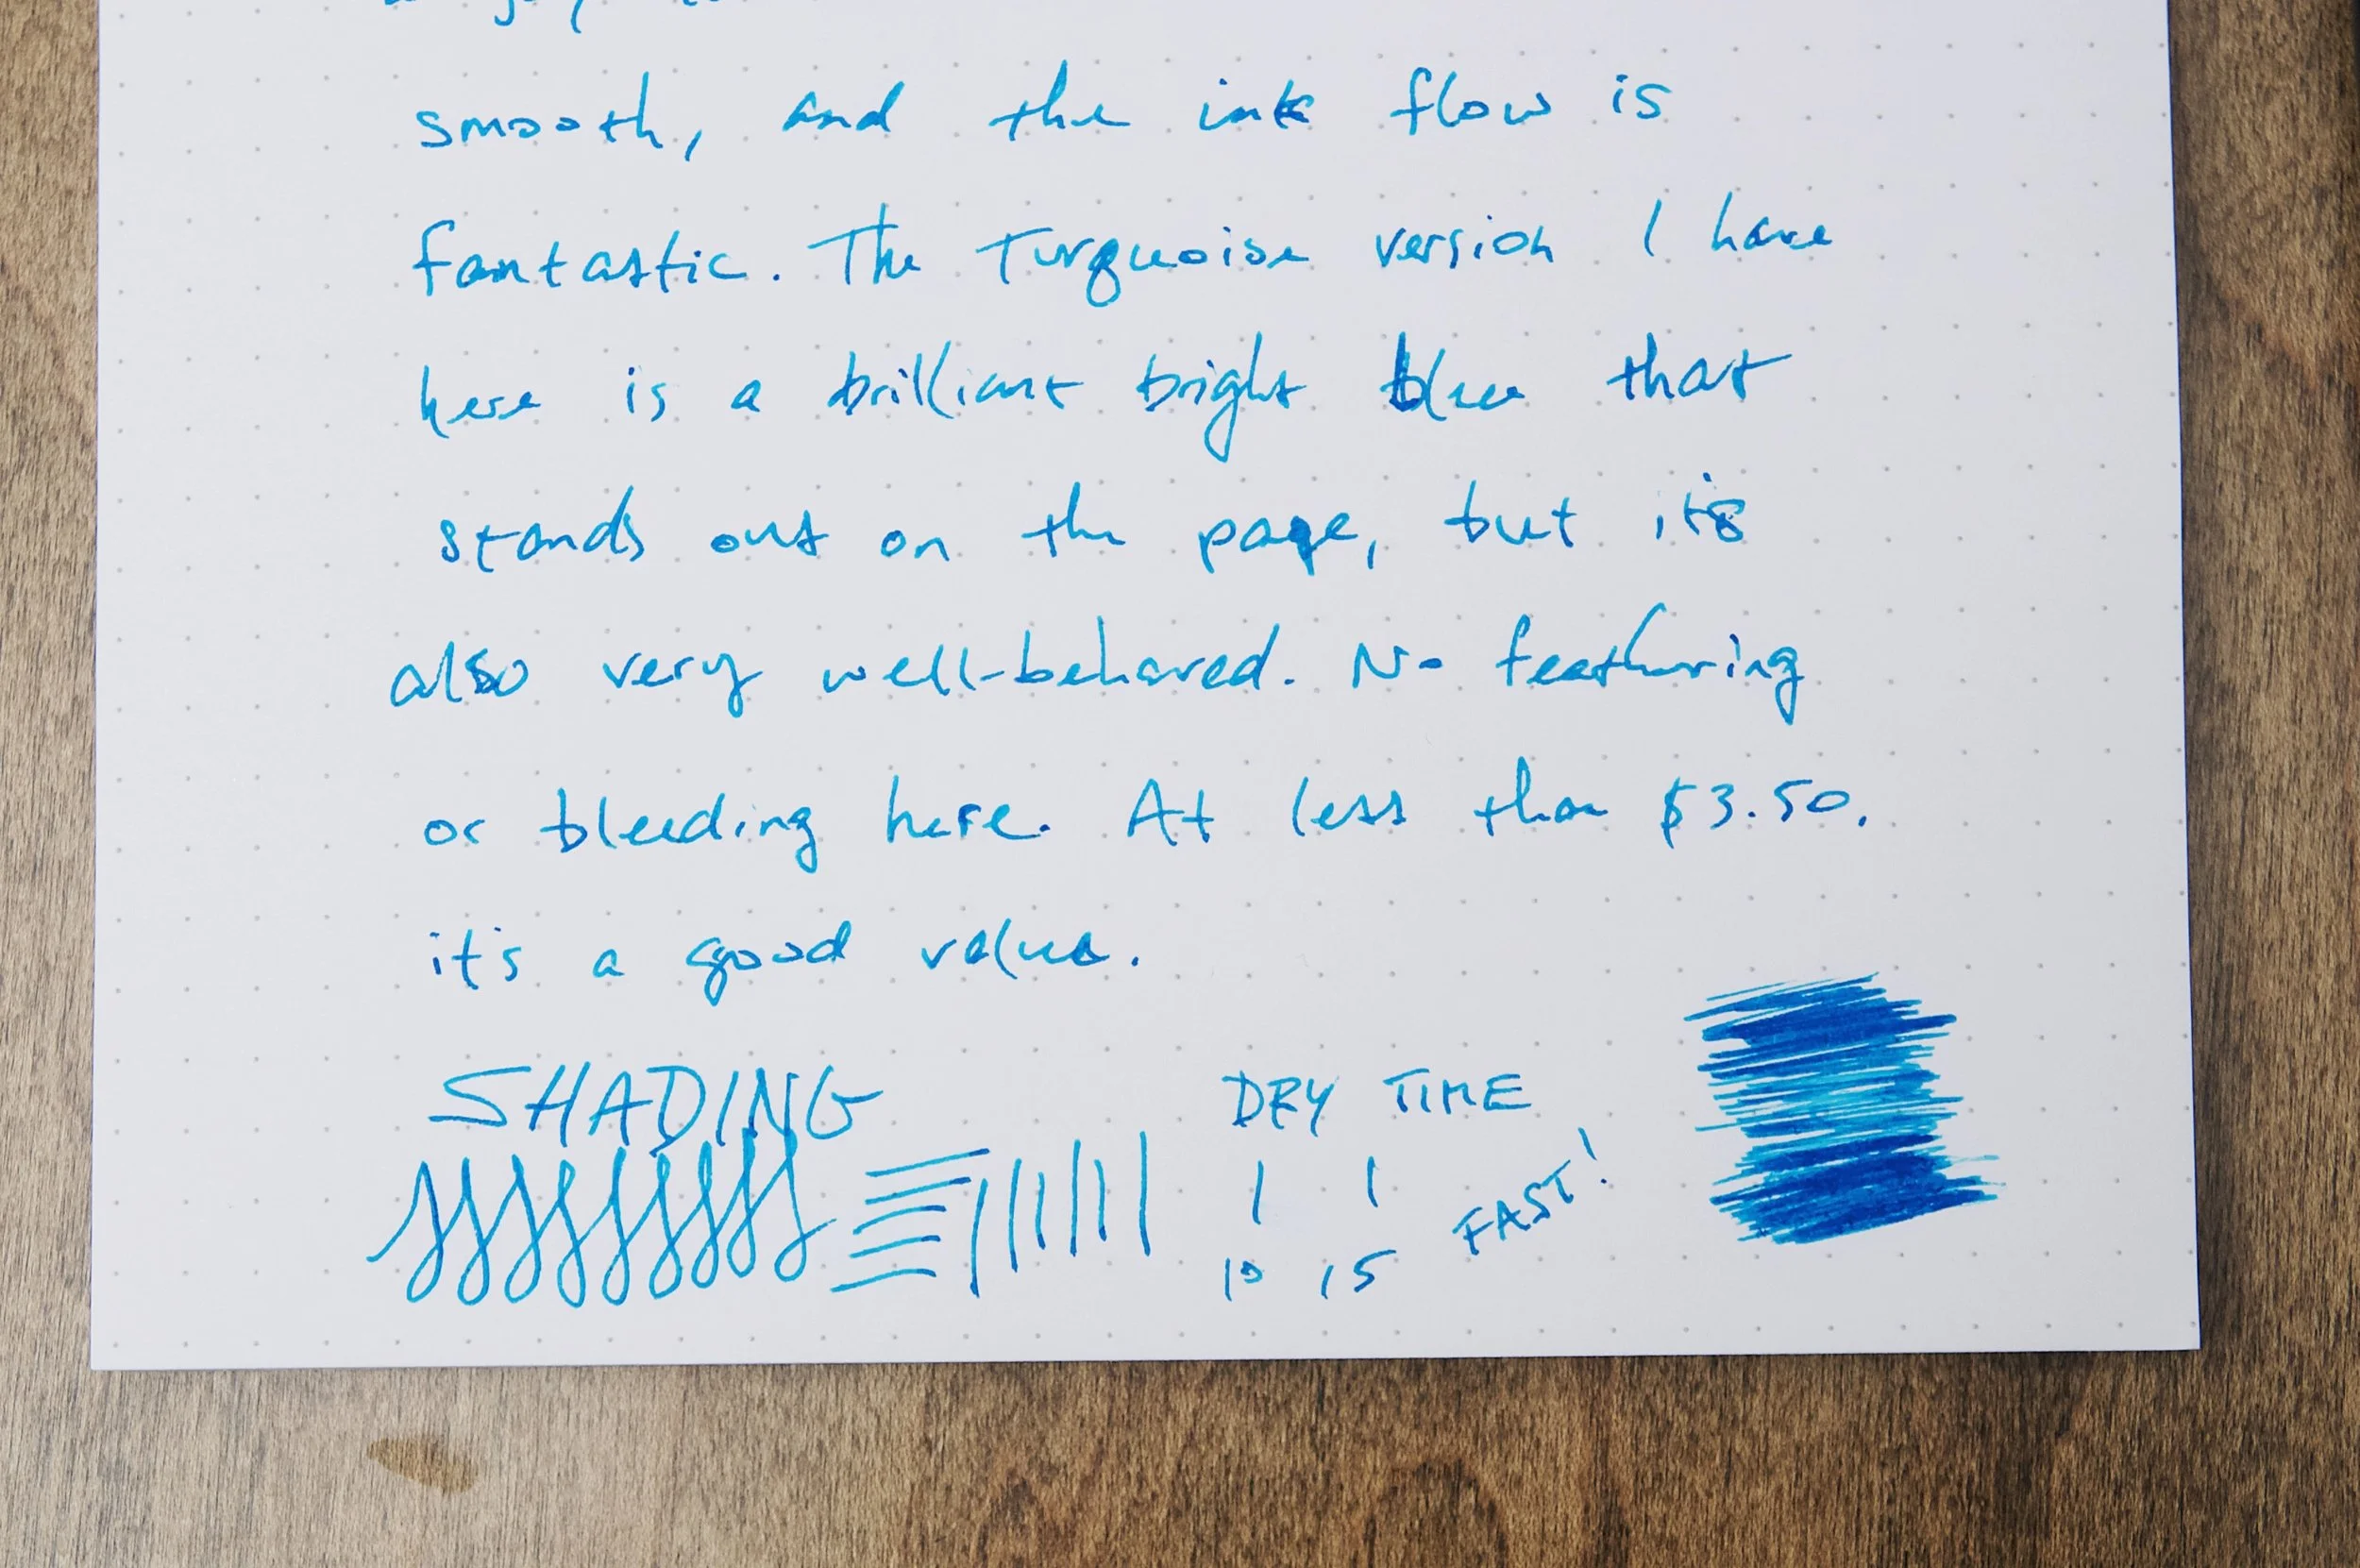 smooth, and the ink flow is
fantastic. The Turquoise version I have
here is a brilliant bright blue that
stands out on the page, but it's
also very well-behaved. No feathering
or bleeding here. At less than $3.50,
it's a good value.
SHADING
DRY TIME
10 15 FAST!